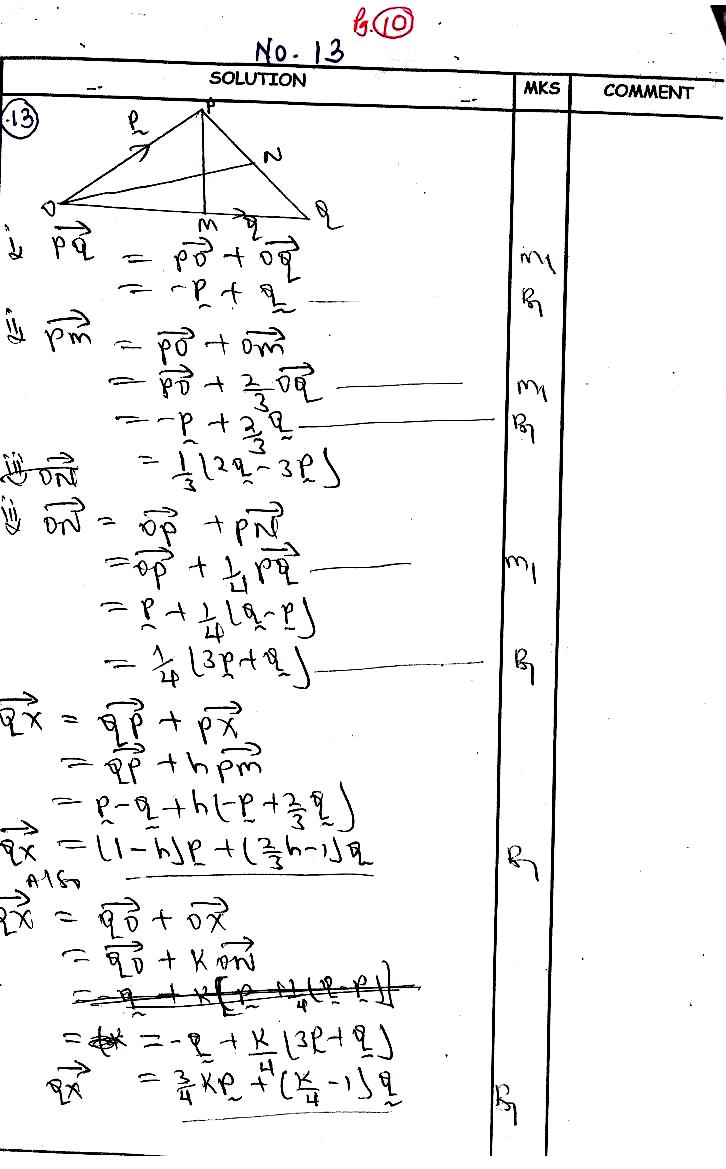 Pg. 10
No. 13
SOLUTION MKS COMMENT
13
P
p
N
O
M q Q
i, PQ→ = PO→ + OQ→ M1
= -p + q B1
ii, PM→ = PO→ + OM→
= PO→ + 2/3 OQ→ M1
= -p + 2/3 q B1
= 1/3 (2q - 3p)
iii, ON→
iii, ON→ = OP→ + PN→
= OP→ + 1/4 PQ→ M1
= p + 1/4 (q - p)
= 1/4 (3p + q) B1
QX→ = QP→ + PX→
= QP→ + h PM→
= p - q + h(-p + 2/3 q)
QX→ = (1-h)p + (2/3 h - 1)q B1
Also
QX→ = QO→ + OX→
= QO→ + K ON→
= -q + K[p + 1/4(q - p)]
= = -q + K/4 (3p + q)
QX→ = 3/4 Kp + (K/4 - 1)q B1